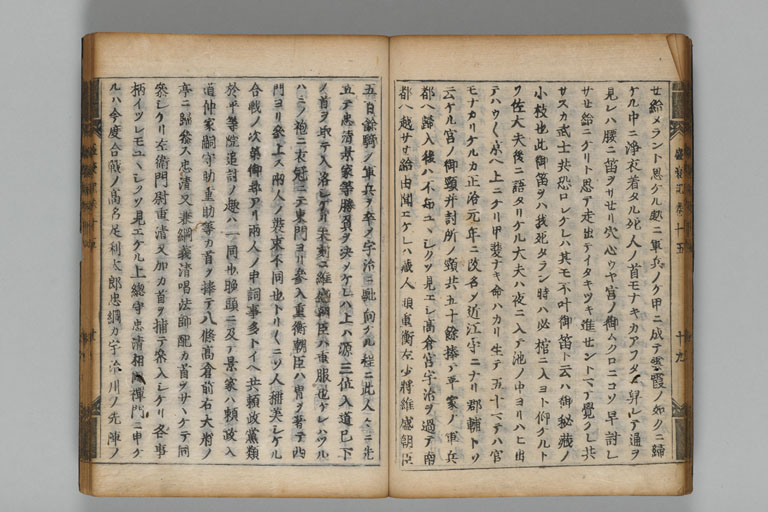 サ給メラント思ケル処ニ軍兵ノケ甲ニ成テ雲霞ノ如クニ歸
ケル中ニ浄衣着タル死人ノ首モナキカアフタニ舁レテ通ヲ
見レハ腰ニ笛ヲサセリ穴心ウヤ宮ノ御ムクロニコソ早討レ
サセ給ニケリト思ア走出テイタキツキ進セントマテ覺クレ共
サスカ武士共恐ロシケレハ其モ不叶御笛ト云ハ御秘蔵ノ
小枝也此御笛ヲハ我死タラン時ハ必棺ニ入ヨト仰ケルト
ソ佐大夫後ニ語タリケル大夫ハ夜ニ入テ池ノ中ヨリハヒ出
テハウ〱京ヘ上ニケリ甲斐ナキ命ハカリ生テ五十マテハ官
モナカリケルカ正治元年ニ改名シ近江守ニナリ郡輔トソ
云ケル宮ノ御頸并討所ノ頸共五十餘捧テ平家ノ軍兵
都ヘ歸入後ハ不知ユヽシクソ見エシ高倉宮宇治ヲ過テ南
都ヘ越サセ給由聞エケレハ蔵人頭重衡左少將維盛朝臣
五百餘騎ノ軍兵ヲ卒メ宇治ニ馳向ケル程ニ此人々ニ先
立テ忠清景家等勝負ヲ決シケレハ上ハ源三位入道已下
ノ首ヲ取テ入洛シケリ未刻ニ維盛朝臣ハ重服也ケレハウル
ハシノ袍ニ衣冠ニテ東門ヨリ參入重衡朝臣ハ冑ヲ著テ西
門ヨリ參上ス兩人ノ裝束不同也トリ〱ニソ人稱美シケル
合戰ノ次第御尋アリ兩人ノ申詞事多トイヘ共頼政黨類
於平等院追討ノ趣ハ一同也晩頭ニ及テ景家ハ頼政入
道仲家嗣守助重助等カ首ヲ捧テ八條高倉前右大將ノ
亭ニ歸參ス忠清又兼綱義清唱法師配カ首ヲサヽケテ同
參シケリ左衛門尉重清又加カ首ヲ捕テ參入シケリ各事
柄イツレモユヽシクソ見エケル上總守忠清相禅門ニ申ケ
ルハ今度合戰ノ高名足利太郎忠綱カ宇治川ノ先陣ノ